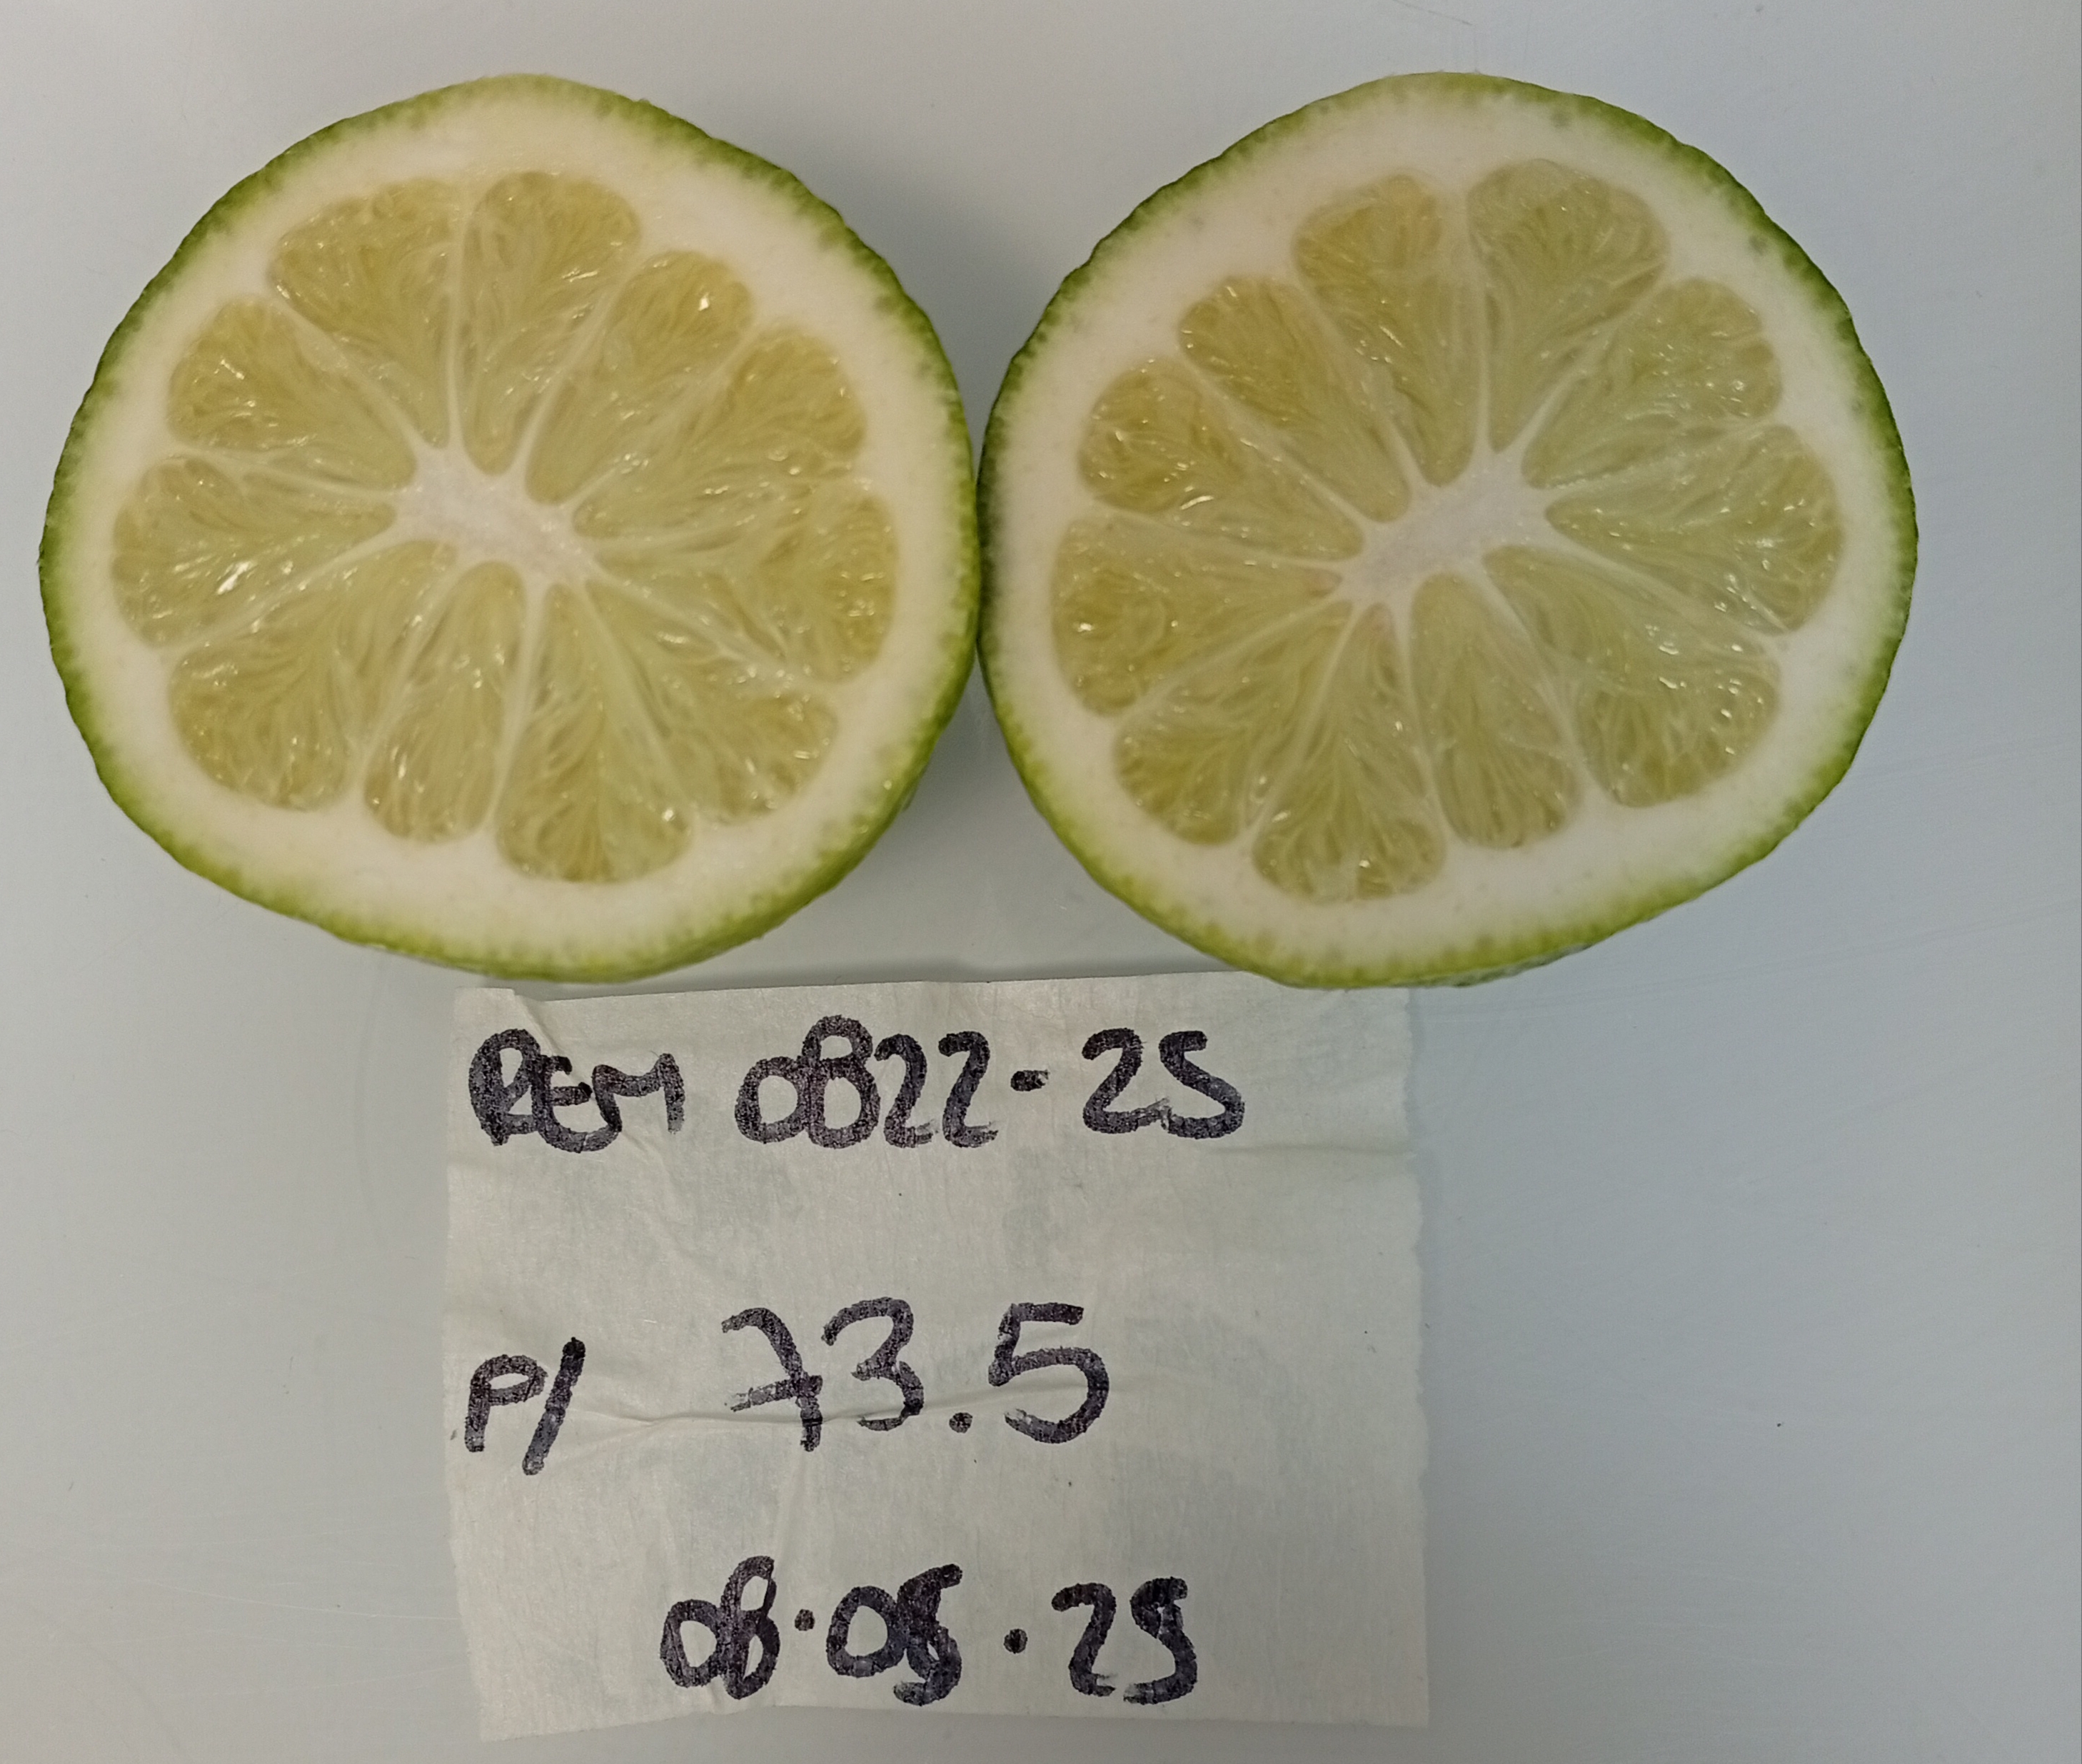 REM 0822-25
P/ 73.5
08.05.25